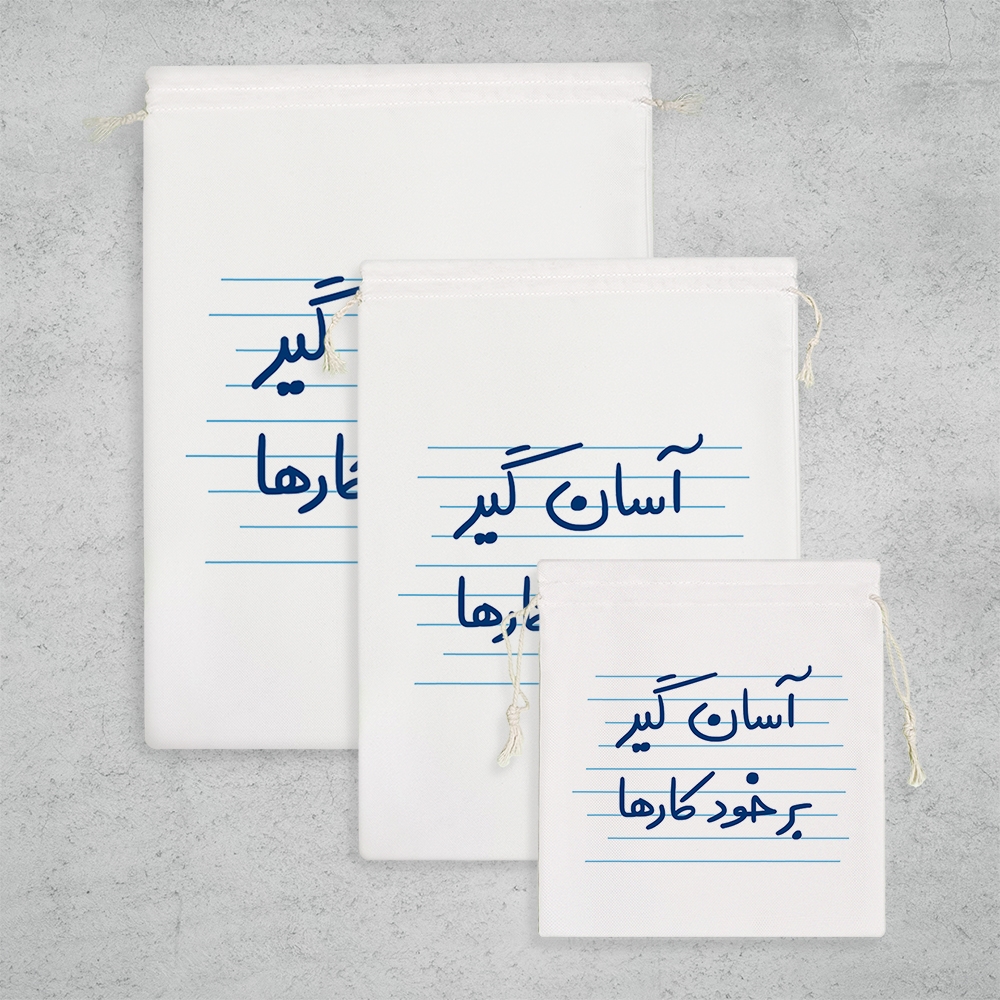 گیر
کارها
آسان گیر
کارها
آسان گیر
بر خود کارها